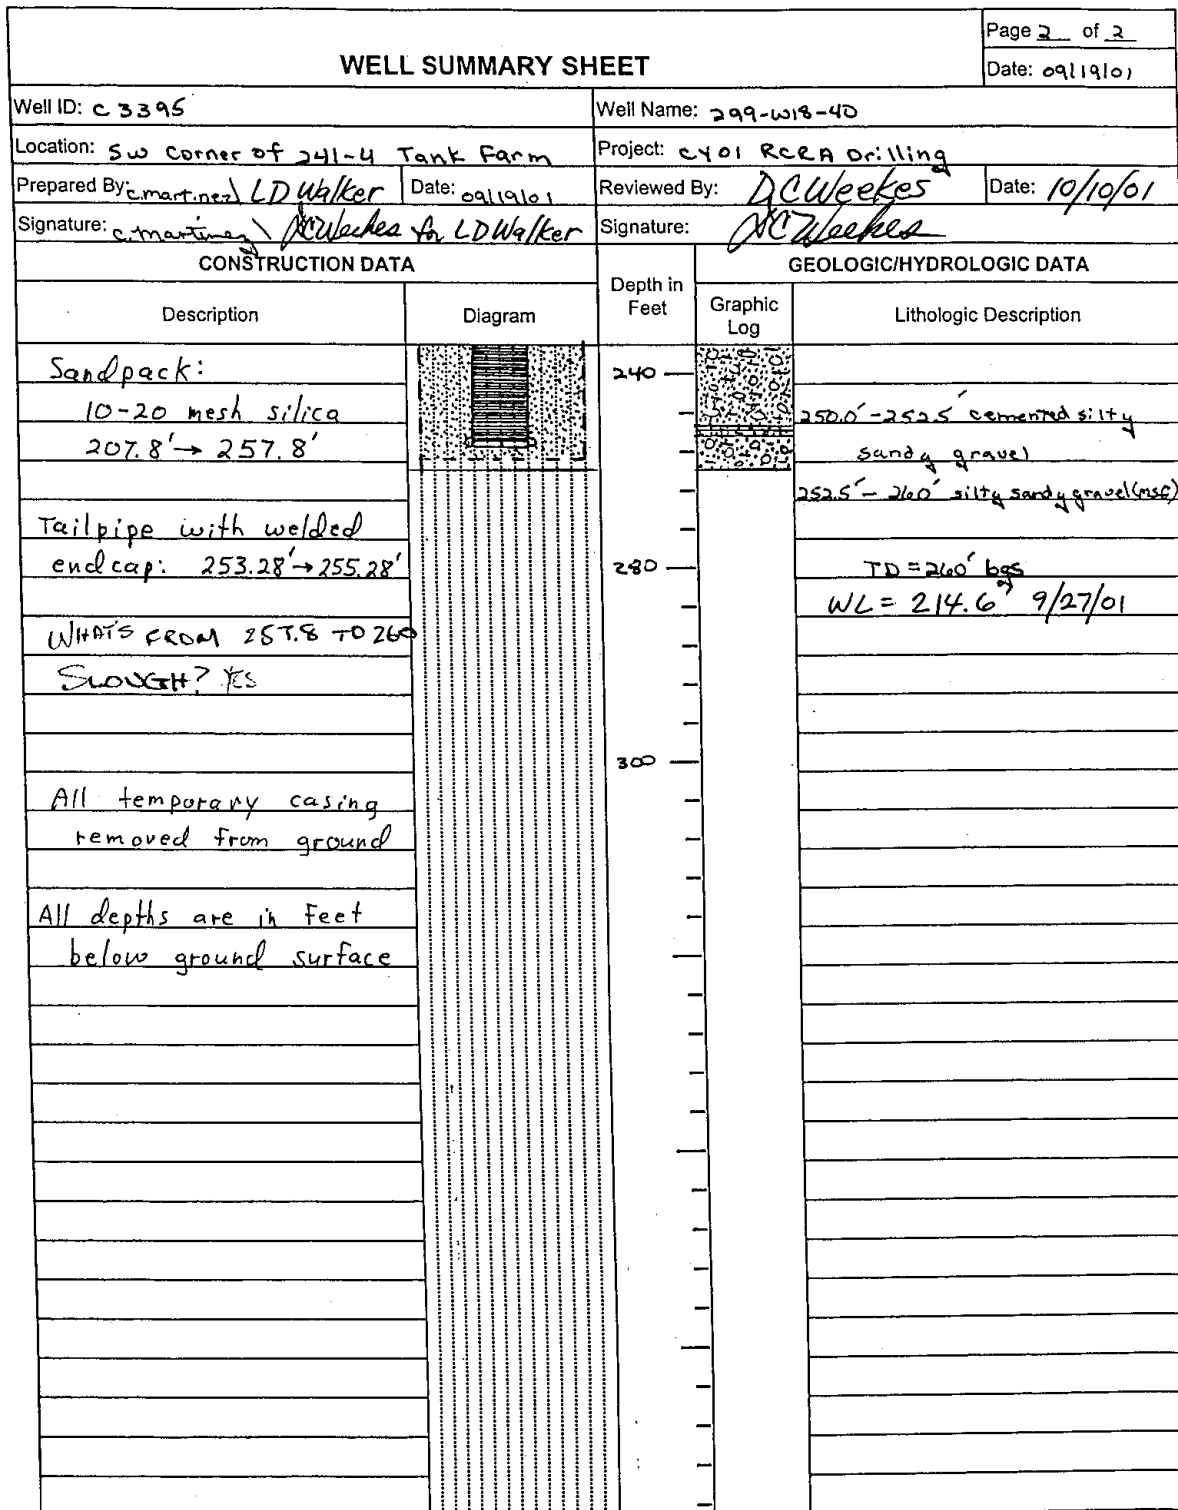 Page 2 of 2
WELL SUMMARY SHEET
Date: 09/19/01
Well ID: C3395
Well Name: 299-W18-40
Location: SW Corner of 241-U Tank Farm
Project: CY01 RCRA Drilling
Prepared By: C. Martinez \ LD Walker
Date: 09/19/01
Reviewed By: DC Weekes
Date: 10/10/01
Signature: C. Martinez \ DC Weekes for LD Walker
Signature: DC Weekes
CONSTRUCTION DATA
Depth in Feet
GEOLOGIC/HYDROLOGIC DATA
Description
Diagram
Graphic Log
Lithologic Description
Sandpack:
10-20 mesh silica
207.8' → 257.8'
Tailpipe with welded
endcap: 253.28' → 255.28'
WHAT'S FROM 257.8 TO 260
SLOUGH? YES
All temporary casing
removed from ground
All depths are in feet
below ground surface
240
280
300
250.0' - 252.5' cemented silty
sandy gravel
252.5' - 260' silty sandy gravel (msG)
TD = 260' bgs
WL = 214.6' 9/27/01